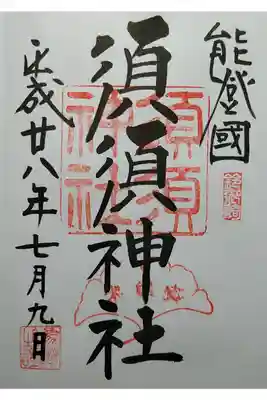 能登國
須須神社
平成廿八年七月九日
須須
神社